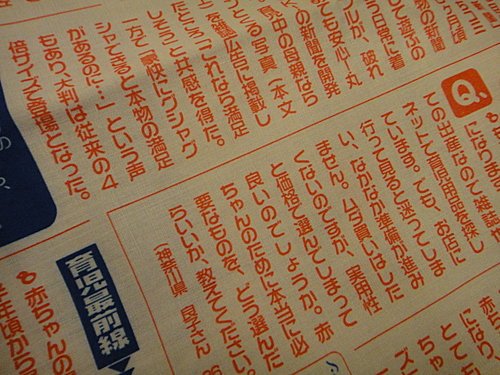 月頃
物の新聞
て遊ぶの
う日常に着
ルが、破れ
も安心！丸
の新聞を開発
長中の母親なら
とる写真（本文
を雑誌広告に掲載し
たところ「これなら満足
しそう」と共感を得た。
一方で「豪快にグシャグ
シャできると本物の満足
があるのに…」という声
もあり、大判は従来の4
倍サイズで登場となった。
Q.
になり
ての出産なので、雑誌
ネットで育児用品を探し
ています。でも、お店に
行って見ると迷ってしま
い、なかなか準備が進み
ません。ムダ買いはした
くないのですが、実用性
と価格で選んでしまって
良いのでしょうか。赤
ちゃんのために本当に必
要なものを、どう選んだ
らいいか、教えてください。
（神奈川県 良子さん 26
になり
とても
ちゃ
ズ
育児最前線
赤ちゃんの
年頃から